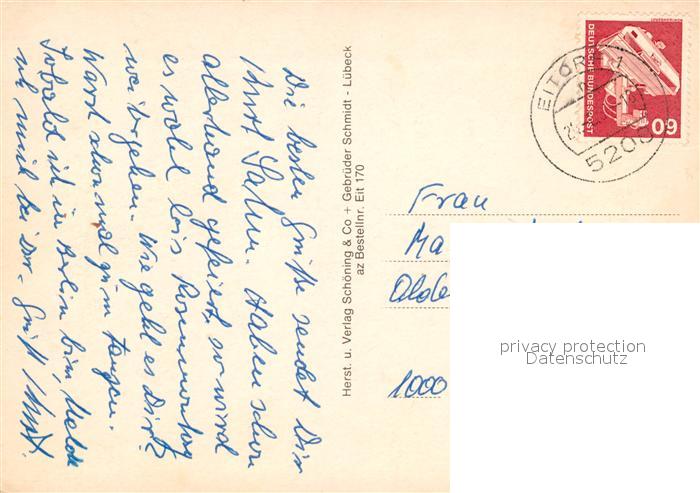 Die besten Grüße sendet Dir
Kurt Sahm. Haben schon
allerhand gefeiert, so wird
es wohl bis Rosenmontag
weitergehen. Wie geht es Dir?
Warst schon mal zum Tanzen.
Sobald ich in Berlin bin, melde
ich mich bei Dir. Gruß Kurt.
Herst. u. Verlag Schöning & Co + Gebrüder Schmidt - Lübeck
az Bestellnr. Eit 170
DEUTSCHE BUNDESPOST
60
EITORF 1
5208
Frau
Ma
Olde
1000
privacy protection
Datenschutz